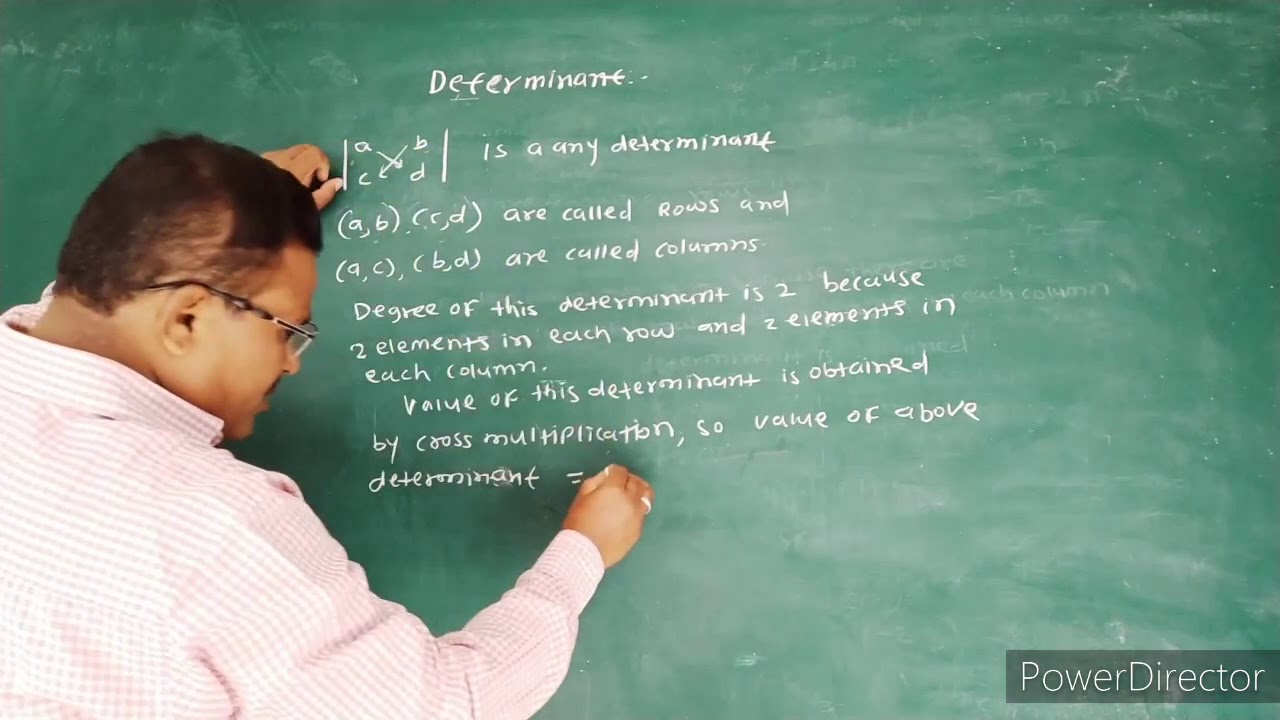 Determinant:-
|a b| is a any determinant
|c d|
(a,b) (c,d) are called Rows and
(a,c), (b,d) are called columns.
Degree of this determinant is 2 because
2 elements in each row and 2 elements in
each column.
value of this determinant is obtained
by cross multiplication, so value of above
determinant =
each column
PowerDirector